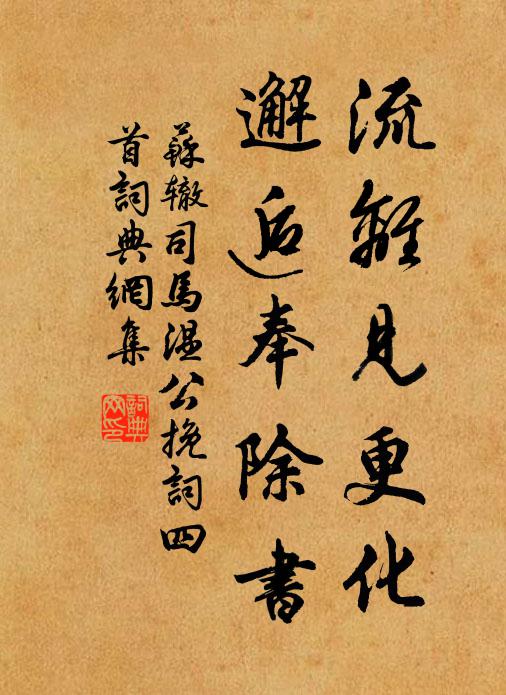 流離見更化
邂逅奉除書
蘇轍司馬溫公挽詞四
首詞典網集
詞典
网印